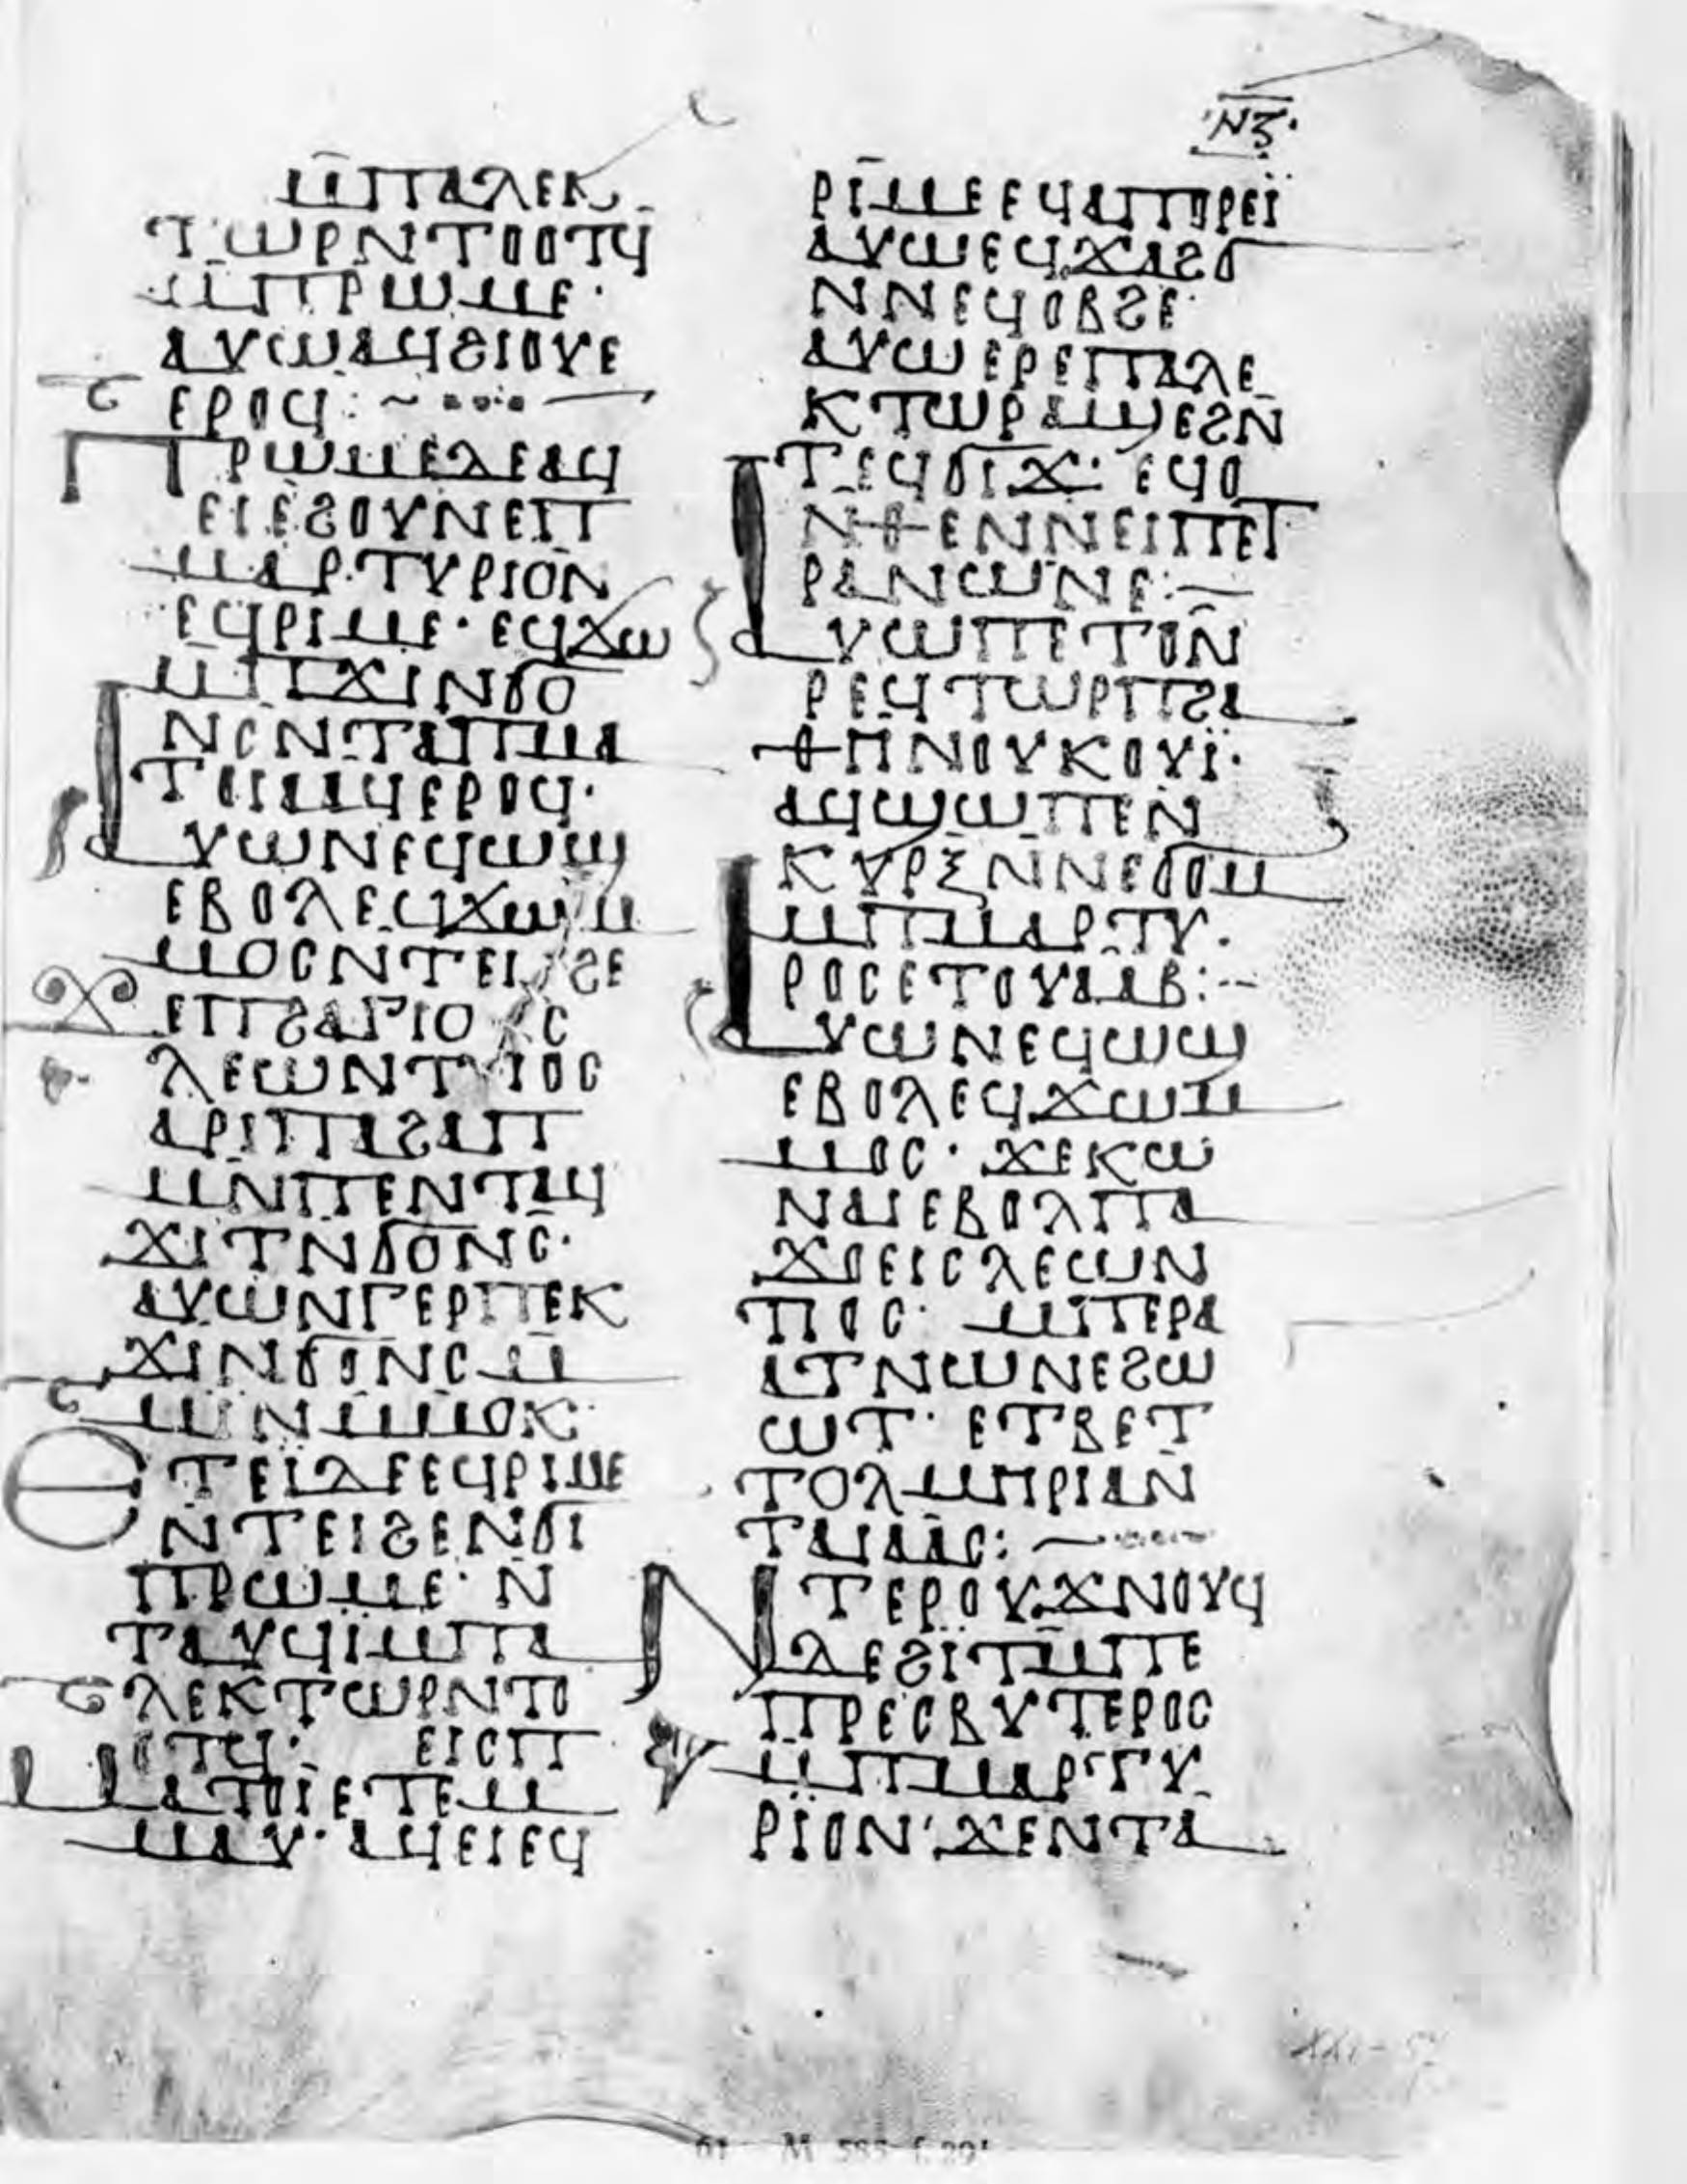 ⲛⲍ
ⲙ̄ⲡⲁⲗⲉⲕ
ⲧⲱⲣ ⲛⲧⲟⲟⲧϥ
ⲙ̄ⲡⲣⲱⲙⲉ·
ⲁⲩⲱ ⲁϥϩⲓⲟⲩⲉ
ⲉⲣⲟϥ: ~
ⲡⲣⲱⲙⲉ ⲇⲉ ⲁϥ
ⲉⲓ ⲉϩⲟⲩⲛ ⲉⲡ
ⲙⲁⲣⲧⲩⲣⲓⲟⲛ
ⲉϥⲣⲓⲙⲉ· ⲉϥϫⲱ
ⲙ̄ⲡϫⲓⲛϭⲟ
ⲛⲥ ⲛⲧⲁⲡⲙⲁ
ⲧⲟⲓ ⲁⲁϥ ⲉⲣⲟϥ·
ⲁⲩⲱ ⲛⲉϥⲱϣ
ⲉⲃⲟⲗ ⲉϥϫⲱ ⲙ
ⲙⲟⲥ ⲛⲧⲉⲓϩⲉ
ϫⲉ ⲡϩⲁⲅⲓⲟⲥ
ⲗⲉⲱⲛⲧⲓⲟⲥ
ⲁⲣⲓ ⲡⲁϩⲁⲡ
ⲙⲛ ⲡⲉⲛⲧⲁϥ
ϫⲓⲧ ⲛϭⲟⲛⲥ̄·
ⲁⲩⲱ ⲛⲅⲉⲣⲡⲉⲕ
ϫⲓⲛϭⲟⲛⲥ ⲙ̄
ⲙⲓⲛ ⲙⲙⲟⲕ
ⲉⲧⲉⲓ ⲇⲉ ⲉϥⲣⲓⲙⲉ
ⲛⲧⲉⲓϩⲉ ⲛϭⲓ
ⲡⲣⲱⲙⲉ· ⲛ
ⲧⲁⲩϥⲓ ⲙⲡⲁ
ⲗⲉⲕⲧⲱⲣ ⲛⲧⲟ
ⲟⲧϥ: ⲉⲓⲥ ⲡ
ⲙⲁⲧⲟⲓ ⲉⲧⲉⲙ
ⲙⲁⲩ· ⲁϥⲉⲓ ⲉϥ
ⲣⲓⲙⲉ ⲉϥⲁⲡⲟⲣⲉⲓ̈
ⲁⲩⲱ ⲉϥϫⲁϩϭ
ⲛⲛⲉϥⲟⲃϩⲉ·
ⲁⲩⲱ ⲉⲣⲉⲡⲁⲗⲉ
ⲕⲧⲱⲣ ⲁϣⲉ ϩⲛ̄
ⲧⲉϥϭⲓϫ: ⲉϥⲟ
ⲛⲑⲉ ⲛⲛⲉⲓⲡⲉⲧ
ⲣⲁ ⲛⲱⲛⲉ: —
ⲁⲩⲱ ⲡⲉⲧⲟ ⲛ̄
ⲣⲉϥⲧⲱⲣⲡ ϩⲁ
ⲑⲏ ⲛⲟⲩⲕⲟⲩⲓ̈·
ⲁϥϣⲱⲡⲉ ⲛ
ⲕⲩⲣⲝ ⲛⲛⲉϭⲟⲙ
ⲙ̄ⲡⲙⲁⲣⲧⲩ·
ⲣⲟⲥ ⲉⲧⲟⲩⲁⲁⲃ: --
ⲁⲩⲱ ⲛⲉϥⲱϣ
ⲉⲃⲟⲗ ⲉϥϫⲱ ⲙ
ⲙⲟⲥ· ϫⲉ ⲕⲱ
ⲛⲁⲓ ⲉⲃⲟⲗ ⲡⲁ
ϫⲟⲉⲓⲥ ⲗⲉⲱⲛ
ⲧⲓⲟⲥ· ⲙⲡⲉⲣⲁ
ⲁⲧ ⲛⲱⲛⲉ ϩⲱ
ⲱⲧ· ⲉⲧⲃⲉ ⲧ
ⲧⲟⲗⲙⲏⲣⲓⲁ ⲛ̄
ⲧⲁⲓⲁⲁⲥ: ~
ⲛⲧⲉⲣⲟⲩϫⲛⲟⲩϥ
ⲇⲉ ϩⲓⲧⲙ̄ ⲡⲉ
ⲡⲣⲉⲥⲃⲩⲧⲉⲣⲟⲥ
ⲙ̄ⲡⲙⲁⲣⲧⲩ
ⲣⲓ̈ⲟⲛ· ϫⲉ ⲛⲧⲁ